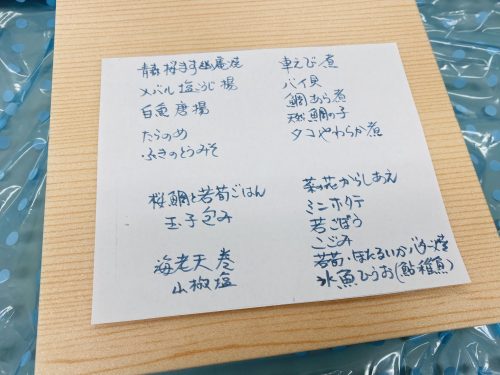 メバル塩こうじ揚
白魚唐揚
たらのめ
・ふきのとうみそ
桜鯛と若筍ごはん
玉子包み
海老天巻
山椒塩
車えび煮
バイ貝
鯛あら煮
天然鯛の子
タコやわらか煮
菜の花からしあえ
ミニホタテ
若ごぼう
こごみ
若筍・ほたるいか バター
氷魚ひうお(鮎稚魚)